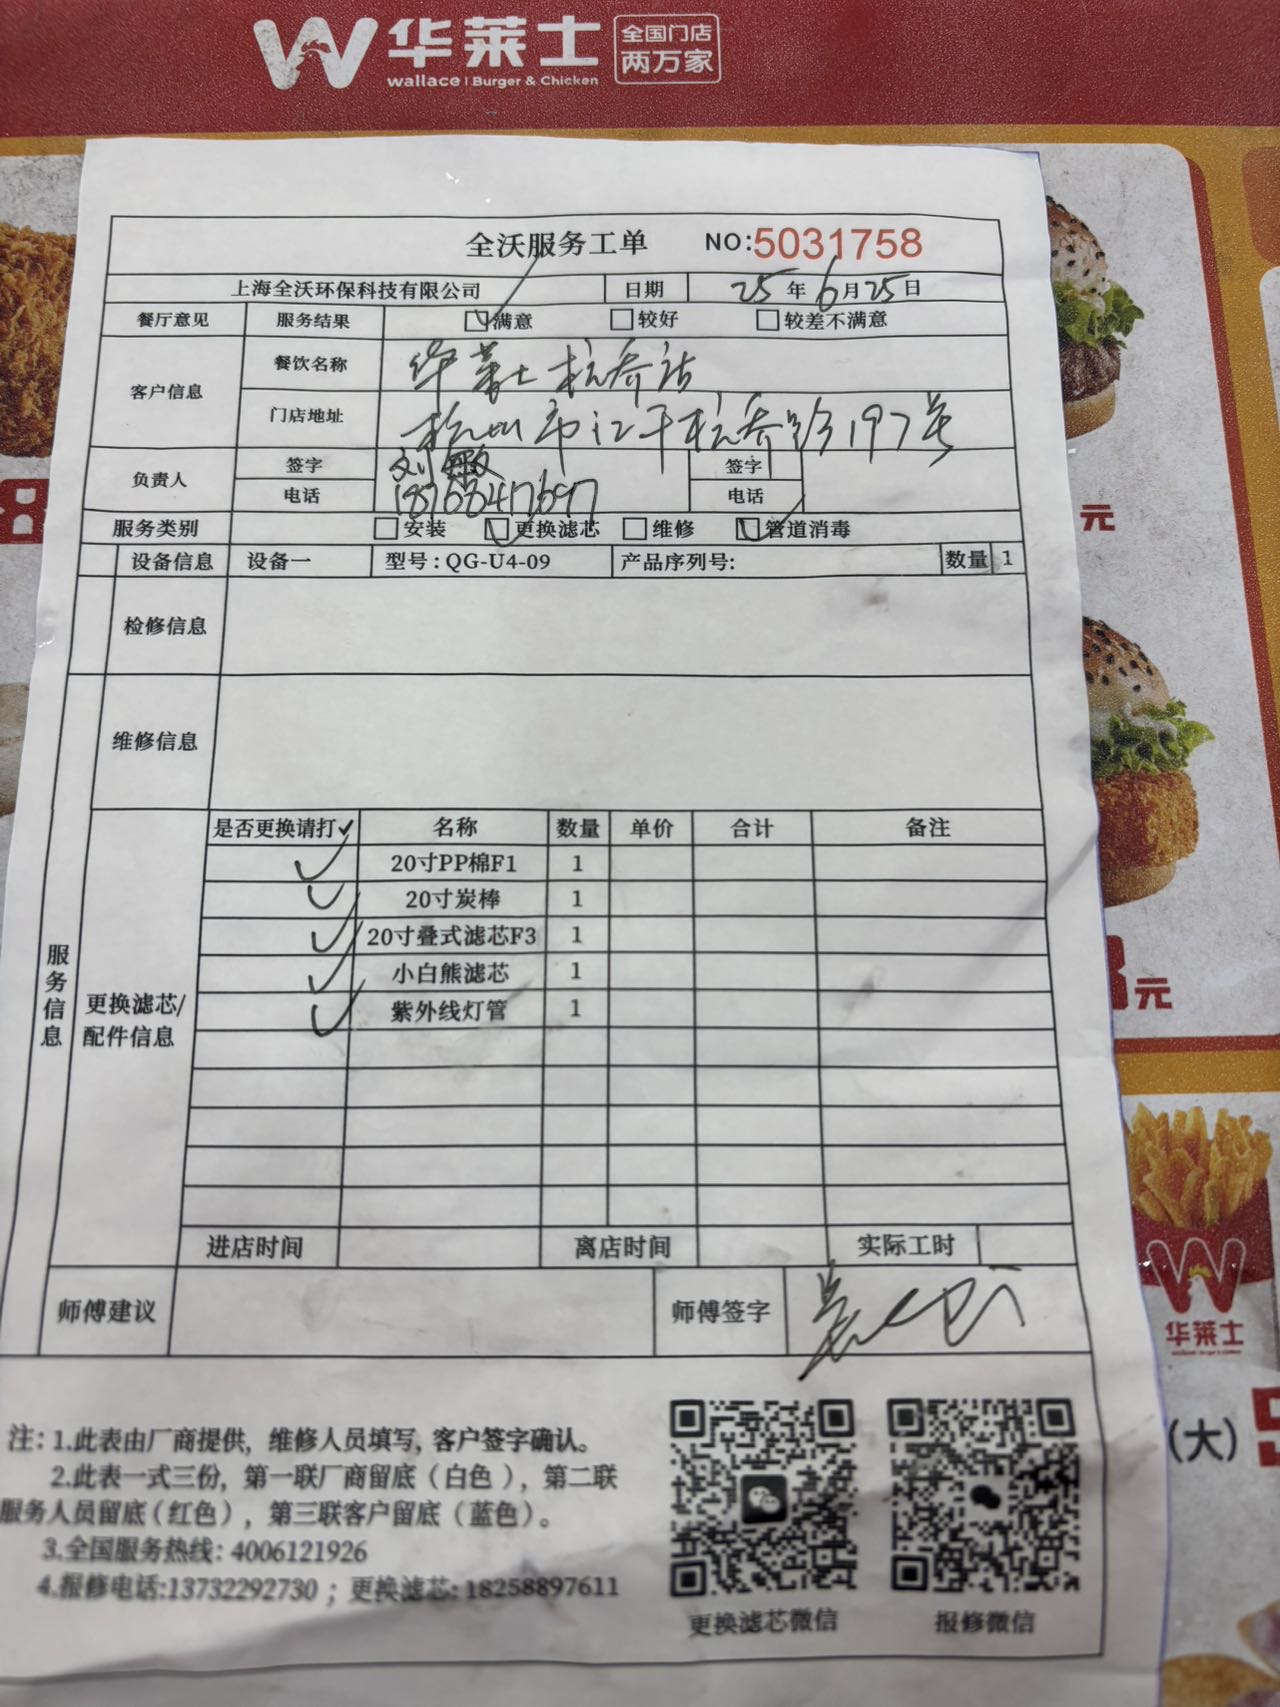 华莱士 全国门店
wallace | Burger & Chicken 两万家
全沃服务工单 NO:5031758
上海全沃环保科技有限公司 日期 25年6月25日
餐厅意见 服务结果 满意 较好 较差不满意
客户信息 餐饮名称 华莱士杭乔店
门店地址 杭州市江干杭乔路197号
负责人 签字 刘敏 签字
电话 18768471697 电话
服务类别 安装 更换滤芯 维修 管道消毒
设备信息 设备一 型号:QG-U4-09 产品序列号: 数量 1
检修信息
维修信息
是否更换请打✓ 名称 数量 单价 合计 备注
✓ 20寸PP棉F1 1
✓ 20寸炭棒 1
✓ 20寸叠式滤芯F3 1
✓ 小白熊滤芯 1
✓ 紫外线灯管 1
服务信息
更换滤芯/
配件信息
进店时间 离店时间 实际工时
师傅建议 师傅签字
注:1.此表由厂商提供,维修人员填写,客户签字确认。
2.此表一式三份,第一联厂商留底(白色),第二联
服务人员留底(红色),第三联客户留底(蓝色)。
3.全国服务热线:4006121926
4.报修电话:13732292730;更换滤芯:18258897611
更换滤芯微信 报修微信
元
元
华莱士
(大)